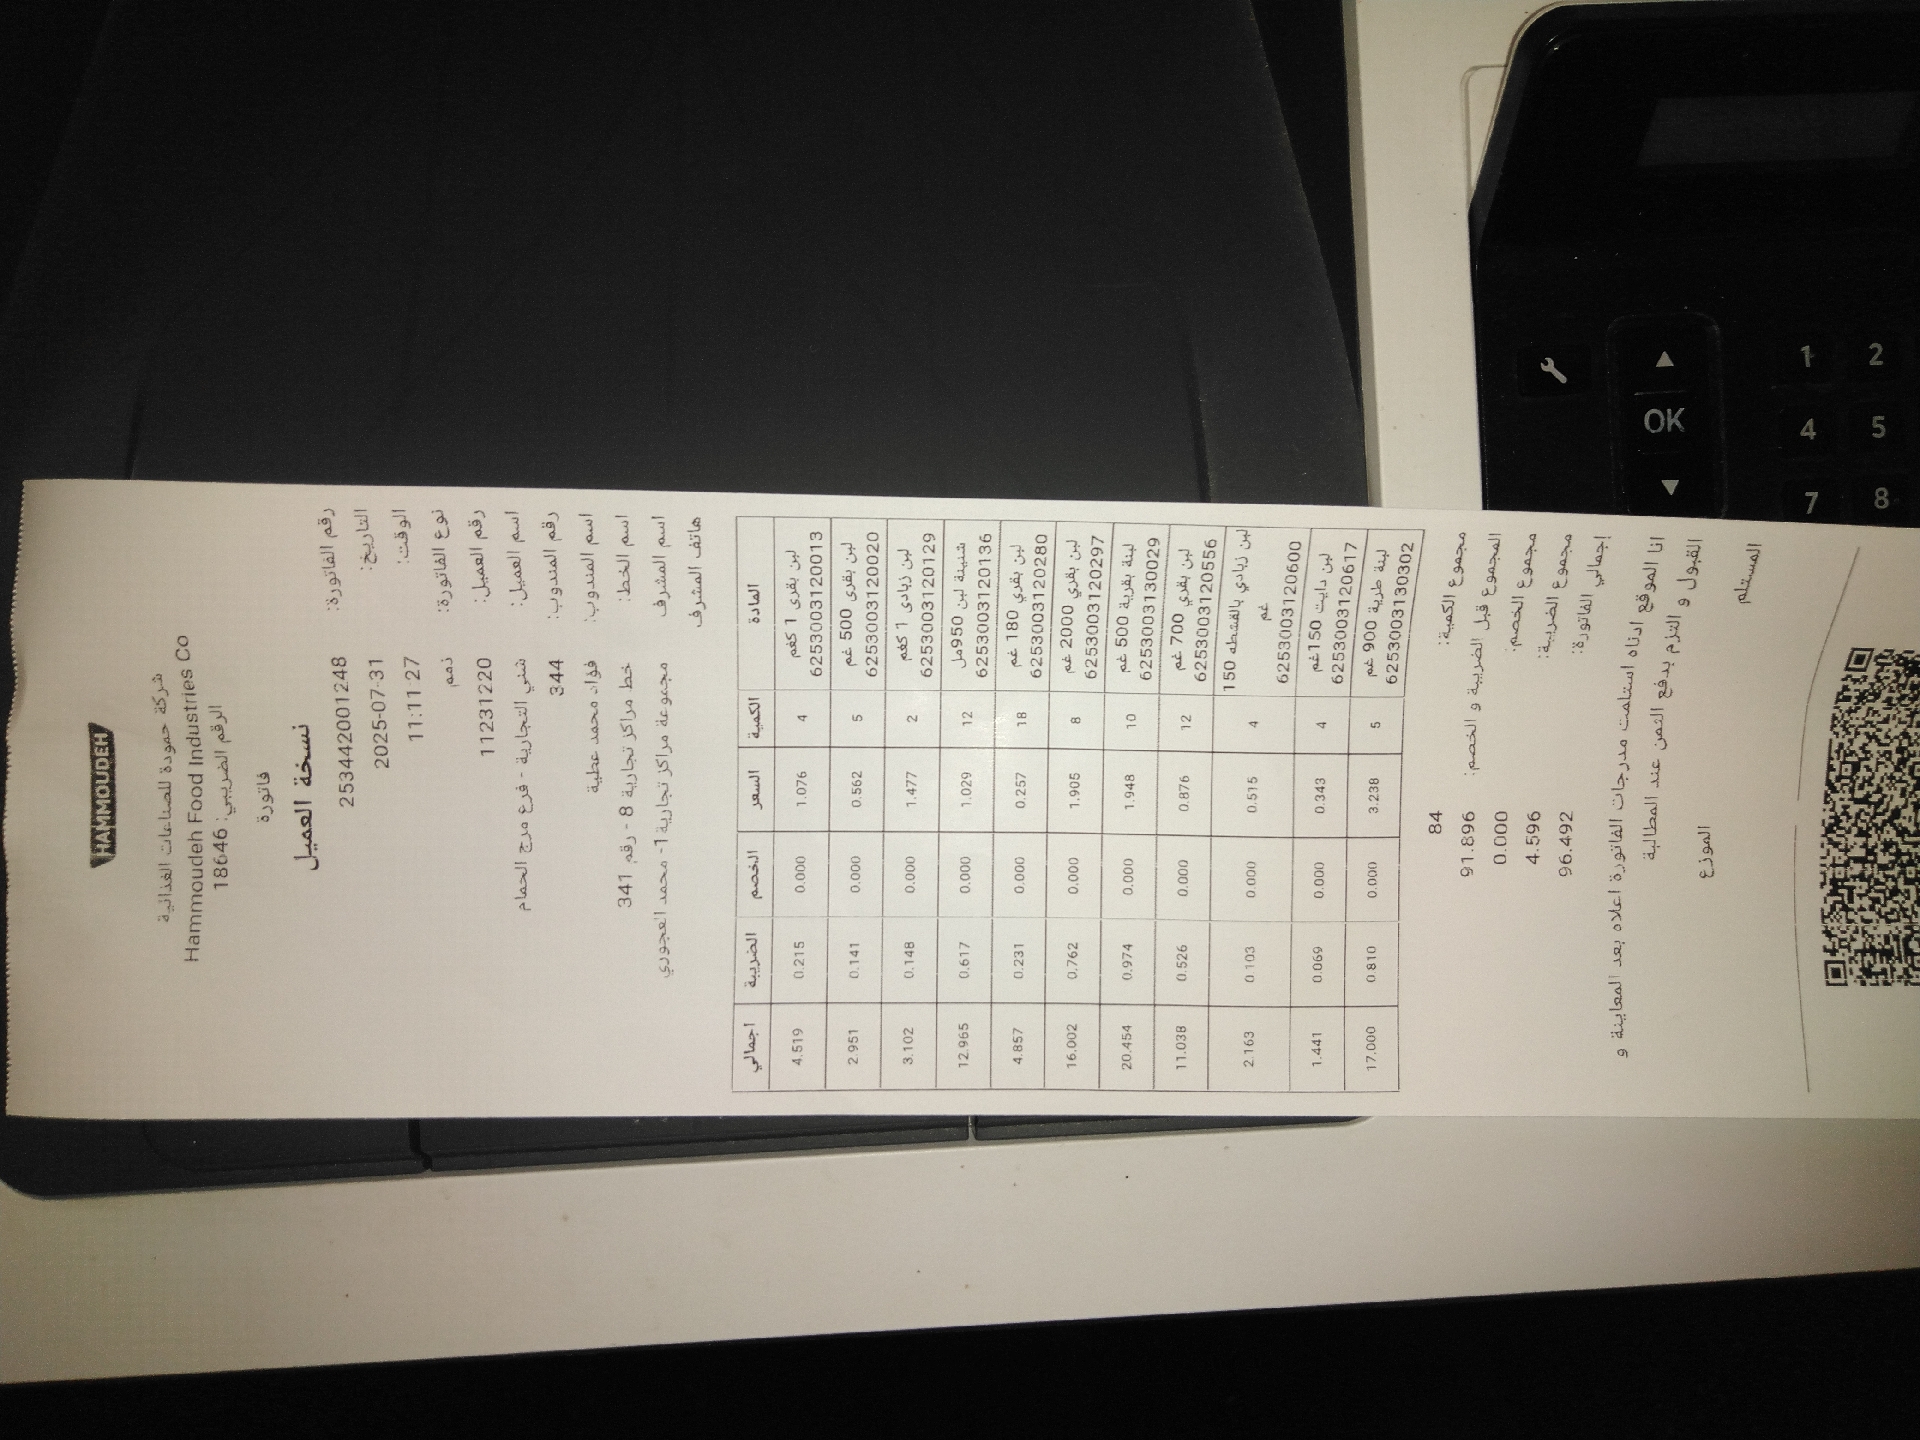 HAMMOUDEH
شركة حمودة للصناعات الغذائية
Hammoudeh Food Industries Co
الرقم الضريبي: 18646
فاتورة
نسخة العميل
رقم الفاتورة: 2534420001248
التاريخ: 2025-07-31
الوقت: 11:11:27
نوع الفاتورة: ذمم
رقم العميل: 11231220
اسم العميل: شني التجارية - فرع مرج الحمام
رقم المندوب: 344
اسم المندوب: فؤاد محمد عطية
اسم الخط: خط مراكز تجارية 8 - رقم 341
اسم المشرف مجموعة مراكز تجارية 1- محمد العجوري
هاتف المشرف
المادة الكمية السعر الخصم الضريبة اجمالي
لبن بقرى 1 كغم 4 1.076 0.000 0.215 4.519
6253003120013
لبن بقرى 500 غم 5 0.562 0.000 0.141 2.951
6253003120020
لبن زبادى 1 كغم 2 1.477 0.000 0.148 3.102
6253003120129
شنينة لبن 950مل 12 1.029 0.000 0.617 12.965
6253003120136
لبن بقري 180 غم 18 0.257 0.000 0.231 4.857
6253003120280
لبن بقري 2000 غم 8 1.905 0.000 0.762 16.002
6253003120297
لبنة بقرية 500 غم 10 1.948 0.000 0.974 20.454
6253003130029
لبن بقري 700 غم 12 0.876 0.000 0.526 11.038
6253003120556
لبن زبادي بالقشطه 150 غم 4 0.515 0.000 0.103 2.163
6253003120600
لبن دايت 150غم 4 0.343 0.000 0.069 1.441
6253003120617
لبنة طرية 900 غم 5 3.238 0.000 0.810 17.000
6253003130302
مجموع الكمية: 84
المجموع قبل الضريبة و الخصم: 91.896
مجموع الخصم: 0.000
مجموع الضريبة: 4.596
إجمالي الفاتورة: 96.492
انا الموقع ادناه استلمت مدرجات الفاتورة اعلاه بعد المعاينة و
القبول و التزم بدفع الثمن عند المطالبة
المستلم الموزع
OK
1 2
4 5
7 8